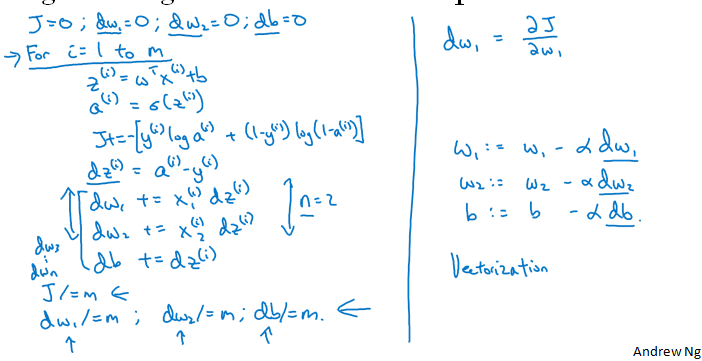 J=0 ; dw₁=0 ; dw₂=0 ; db=0
→ For i = 1 to m
z⁽ⁱ⁾ = wᵀx⁽ⁱ⁾+b
a⁽ⁱ⁾ = σ(z⁽ⁱ⁾)
J+=-[y⁽ⁱ⁾ log a⁽ⁱ⁾ + (1-y⁽ⁱ⁾) log(1-a⁽ⁱ⁾)]
dz⁽ⁱ⁾ = a⁽ⁱ⁾-y⁽ⁱ⁾
dw₁ += x₁⁽ⁱ⁾ dz⁽ⁱ⁾
dw₂ += x₂⁽ⁱ⁾ dz⁽ⁱ⁾
n=2
db += dz⁽ⁱ⁾
dw₃
⋮
dwₙ
J/=m ←
dw₁/=m ; dw₂/=m ; db/=m. ←
↑ ↑ ↑
dw₁ = ∂J/∂w₁
w₁ := w₁ - α dw₁
w₂ := w₂ - α dw₂
b := b - α db.
Vectorization
Andrew Ng